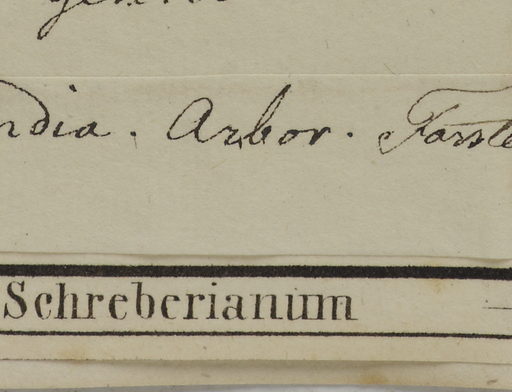 ndia. Arbor. Forste
Schreberianum